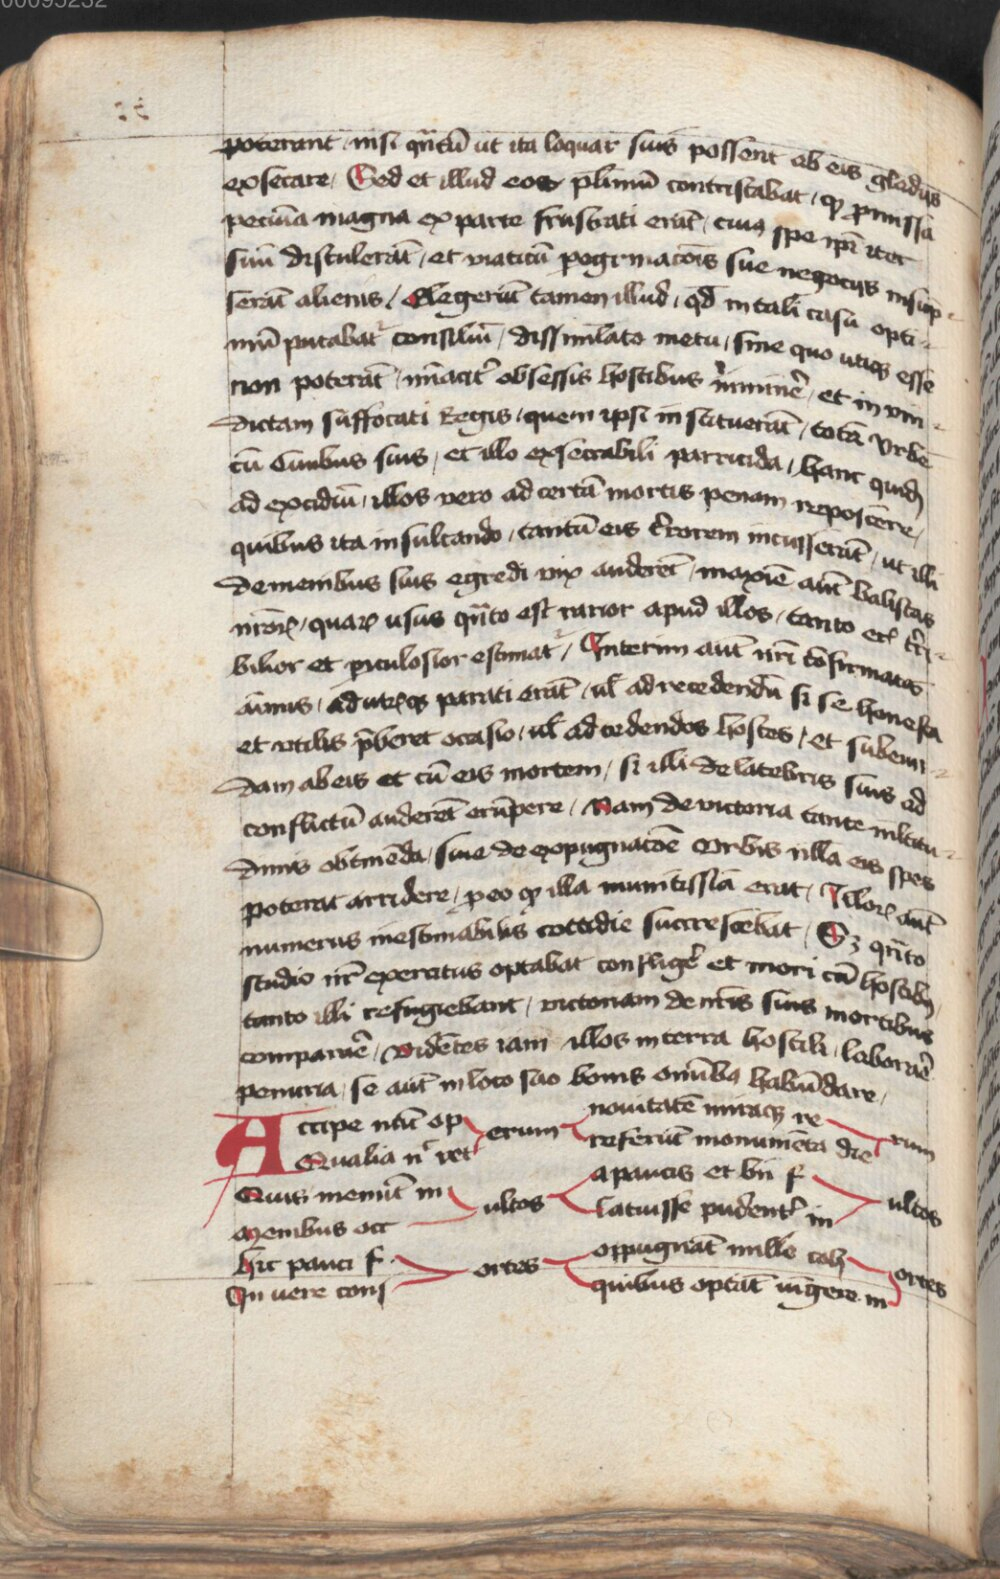 00095232
poterant / nisi qñtũ ut ita loquar suis possent ab eis gladijs
exsecare / Sed et illud eos plimũ contristabat / qꝫ ꝓmissa
pecũia magna ex parte frustrati erãt / cuiꝯ spe ipi iter
suũ distulerãt / et viaticũ pegrinacõis sue negocijs insup
serãt alienis / Elegerũt tamen illud / qd in tali casu opti
mũ putabat consiliũ / dissimlato metu / sine quo utiqꝫ esse
non poterãt / minacit obsessis hostibus iminẽ / et in vin
dictam suffocati Regis / quem ipsi instituerãt / totã Vrbẽ
cũ Ciuibus suis / et illo exsecrabili parricida / hanc quidẽ
ad excidiũ / illos vero ad certã mortis penam reposcere /
quibus ita insultando / tantũ eis t̃rorem incusserãt / ut illi
de menibus suis egredi vix auderẽt / maxiẽ aũt balistas
nr̃oꝝ / quaꝝ usus qñto est rarior apud illos / tanto et t̃ri
bilior et piculosior estimat / Interim aũt nr̃i cõfirmatis
aĩmis / ad utrꝫqꝫ parati erãt / ul ad recedendũ si se honesta
et vtilis p̃beret ocasio / ul ad cedendos hostes / et subeun
dam ab eis et cũ eis mortem / si illi de latebris suis ad
conflictũ auderẽt erũpere / Nam de victoria tante mltitu
dinis obtinẽda / siue de expugnacõe Vrbis nlla eis spes
poterat arridere / ꝓ eo qꝫ illa munitissĩa erat / Illoꝝ aũt
numerus inestimabilis cottidie succrescebat / Sꝫ qñto
studio nr̃ exercitus optabat confligẽ et mori cũ hostibꝯ
tanto illi refugiebant / victoriam de nr̃is suis mortibus
comparaẽ / Vidẽtes iam illos in terra hostili / laboraẽ
penuria / se aũt in loco suo bonis oĩmbꝯ habũdare /
Accipe nũc op erum nouitatẽ miraqꝫ re rum
Qualia n vet referũt monumẽta die
Quis meminit m ultos a paucis et bñ f ultos
Menibus occ latuisse pudent in
Hic pauci f ortes oppugnãt mille coh ortes
In uere cons quibus optãt vigere m